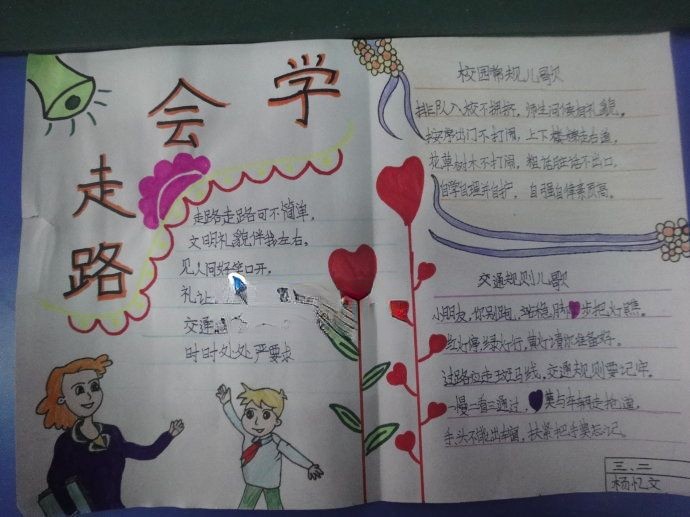 学会走路
走路走路可不简单，
文明礼貌伴我左右。
见人问好笑口开，
礼让
交通
时时处处严要求
校园常规儿歌
排队入校不拥挤，师生问候有礼貌。
按序出门不打闹，上下楼梯走右道。
花草树木不打闹，粗话脏话不出口。
自学自理并自护，自强自律素质高。
交通规则儿歌
小朋友，你别跑，站稳脚步把灯瞧。
红灯停绿灯行，黄灯请你准备好。
过路应走斑马线，交通规则要记牢。
一慢二看三通过，莫与车辆走抢道。
手头不能出车窗，扶紧把手莫忘记。
三、二
杨忆文